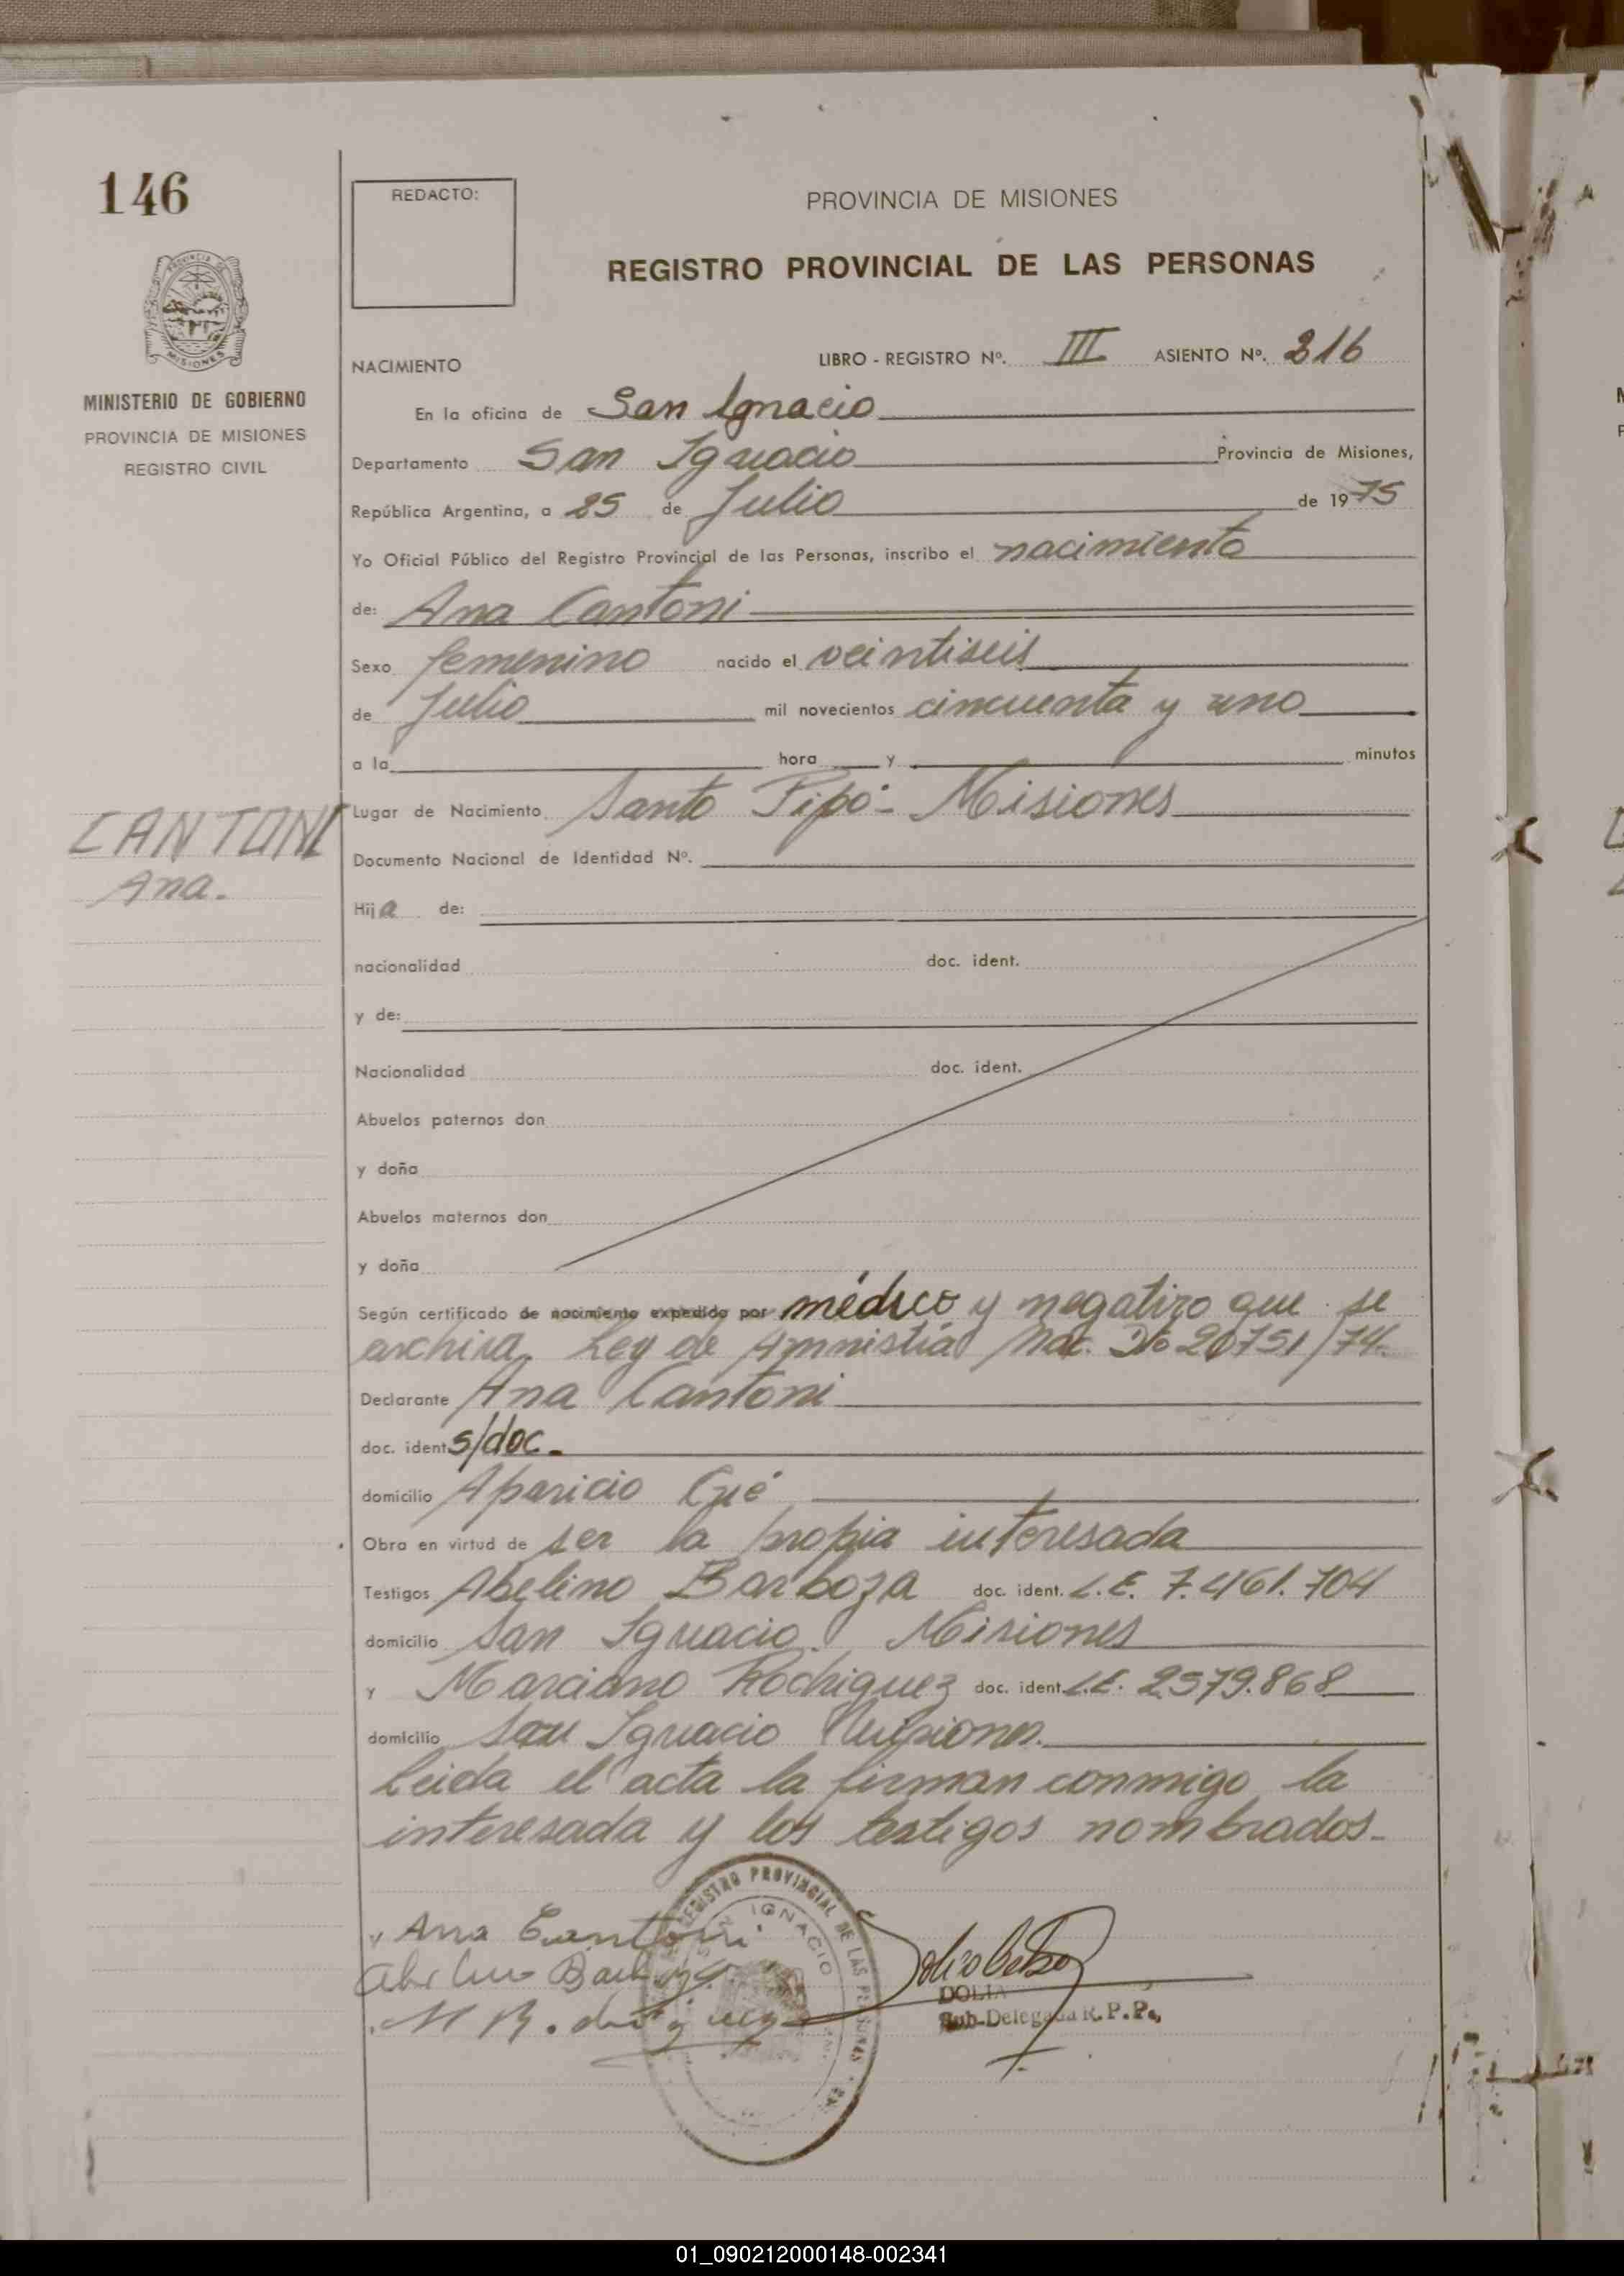 146
REDACTO:
PROVINCIA DE MISIONES
REGISTRO PROVINCIAL DE LAS PERSONAS
PROVINCIA DE
MISIONES
MINISTERIO DE GOBIERNO
PROVINCIA DE MISIONES
REGISTRO CIVIL
NACIMIENTO LIBRO - REGISTRO Nº. III ASIENTO Nº. 316
En la oficina de San Ignacio
Departamento San Ignacio Provincia de Misiones,
República Argentina, a 25 de Julio de 1975
Yo Oficial Público del Registro Provincial de las Personas, inscribo el nacimiento
de: Ana Cantoni
Sexo femenino nacido el veintiseis
de Julio mil novecientos cincuenta y uno
a la hora y minutos
Lugar de Nacimiento Santo Pipó - Misiones
CANTONI
Ana.
Documento Nacional de Identidad Nº.
Hija de:
nacionalidad doc. ident.
y de:
Nacionalidad doc. ident.
Abuelos paternos don
y doña
Abuelos maternos don
y doña
Según certificado de nacimiento expedido por médico y negativo que se
archiva, Ley de Amnistía Nac. Nº 20751/74.
Declarante Ana Cantoni
doc. ident. s/doc.
domicilio Aparicio Cué
Obra en virtud de ser la propia interesada
Testigos Abelino Barboza doc. ident. L.E. 7.461.704
domicilio San Ignacio. Misiones
y Marciano Rodriguez doc. ident. L.E. 2579.868
domicilio San Ignacio Misiones.
Leida el acta la firman conmigo la
interesada y los testigos nombrados.
REGISTRO PROVINCIAL DE LAS PERSONAS
SAN IGNACIO
Ana Cantoni
Abelino Barboza
M R.driguez
DOLIA
Sub-Delegada R.P.P.
01_090212000148-002341